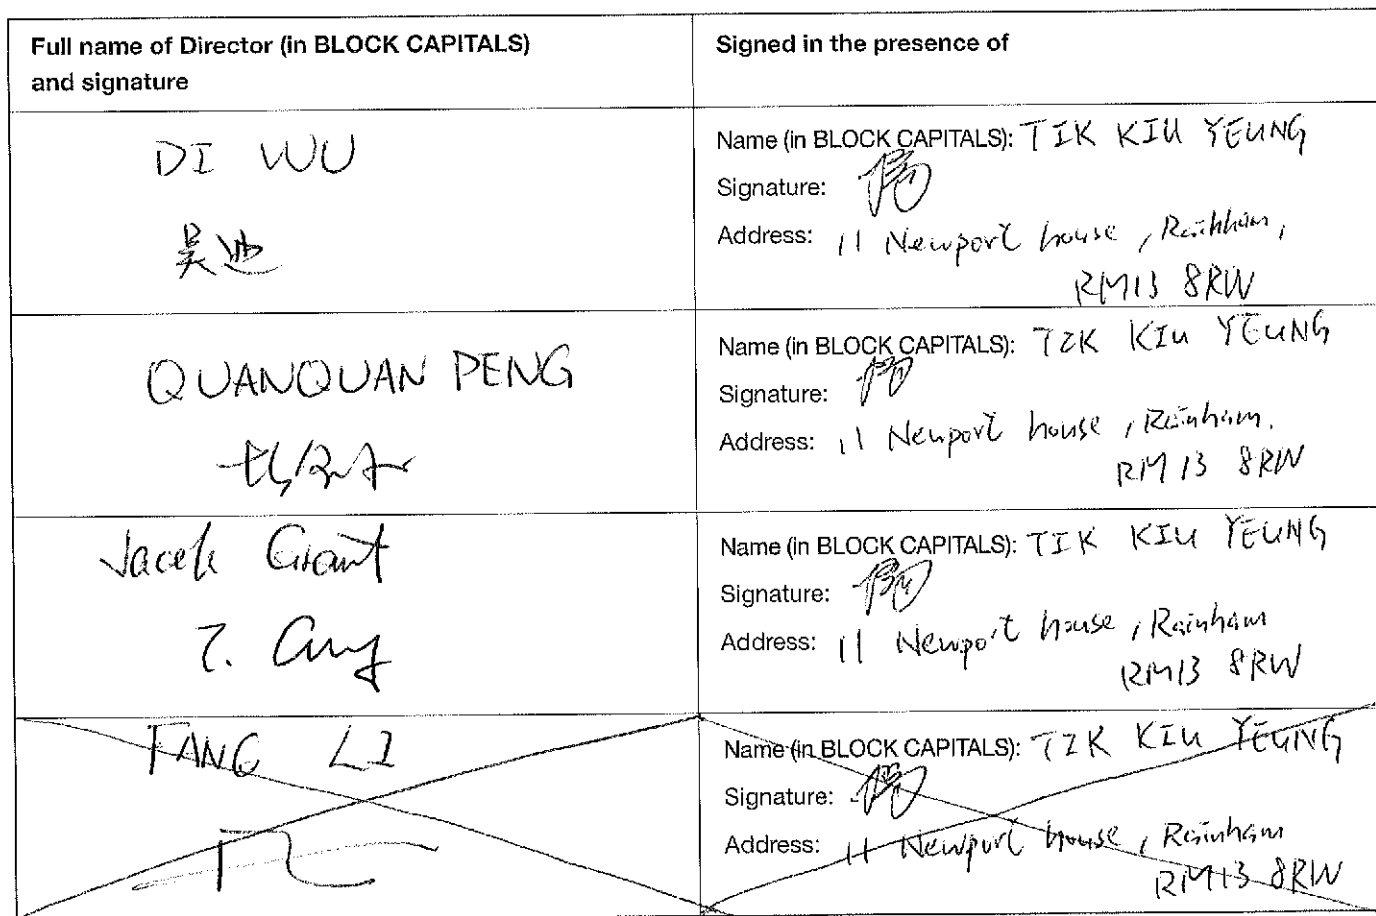 Full name of Director (in BLOCK CAPITALS)
and signature
Signed in the presence of
DI WU
吴迪
Name (in BLOCK CAPITALS): TIK KIU YEUNG
Signature:
Address: 11 Newport house, Rainham,
RM13 8RW
QUANQUAN PENG
Name (in BLOCK CAPITALS): TIK KIU YEUNG
Signature:
Address: 11 Newport house, Rainham.
RM13 8RW
Jacek Grant
Name (in BLOCK CAPITALS): TIK KIU YEUNG
Signature:
Address: 11 Newport house, Rainham
RM13 8RW
FANG LI
Name (in BLOCK CAPITALS): TIK KIU YEUNG
Signature:
Address: 11 Newport house, Rainham
RM13 8RW